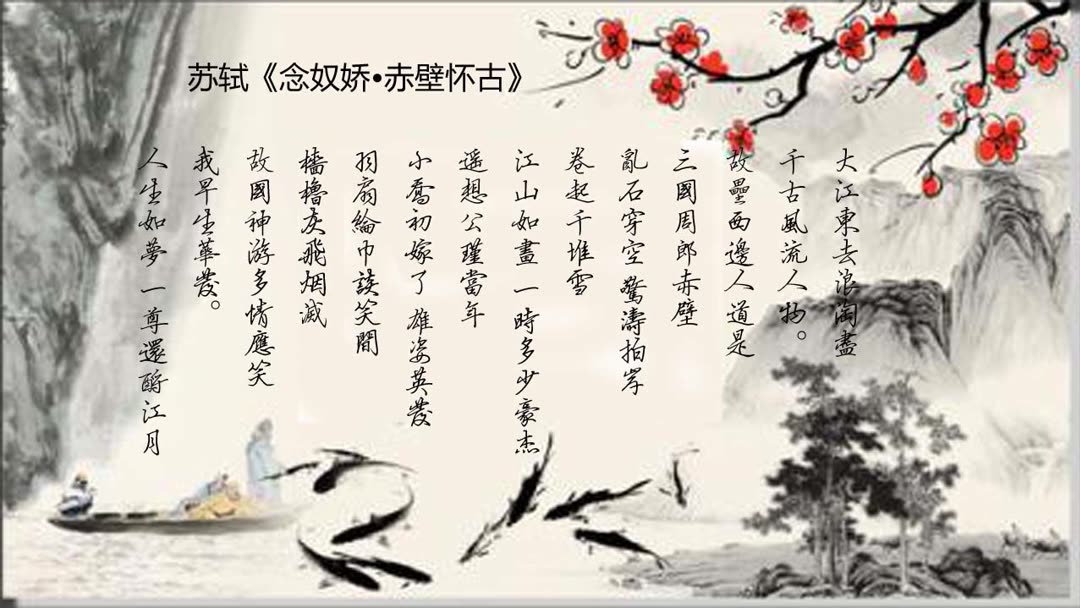 苏轼《念奴娇•赤壁怀古》
大江東去浪淘盡
千古風流人物。
故壘西邊人道是
三國周郎赤壁
亂石穿空 驚濤拍岸
卷起千堆雪
江山如畫一時多少豪杰
遥想公瑾當年
小喬初嫁了 雄姿英發
羽扇綸巾談笑間
檣櫓灰飛烟滅
故國神游多情應笑
我早生華發。
人生如夢一尊還酹江月